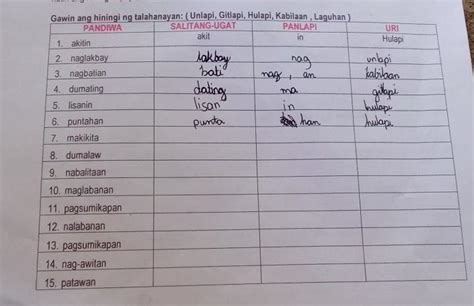 Gawin ang hiningi ng talahanayan: ( Unlapi, Gitlapi, Hulapi, Kabilaan , Laguhan )
PANDIWA SALITANG-UGAT PANLAPI URI
1. akitin akit in Hulapi
2. naglakbay lakbay nag unlapi
3. nagbatian bati nag, an kabilaan
4. dumating dating ma gitlapi
5. lisanin lisan in hulapi
6. puntahan punta han hulapi
7. makikita
8. dumalaw
9. nabalitaan
10. maglabanan
11. pagsumikapan
12. nalabanan
13. pagsumikapan
14. nag-awitan
15. patawan